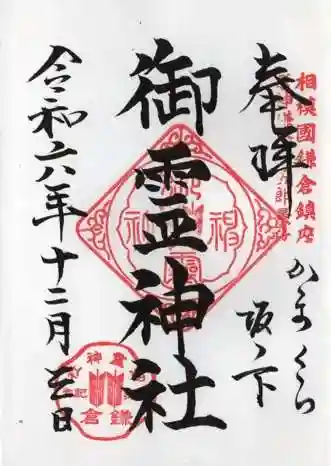 相模國鎌倉鎮座
奉拝
かまくら
坂ノ下
御霊神社
令和六年十二月
日